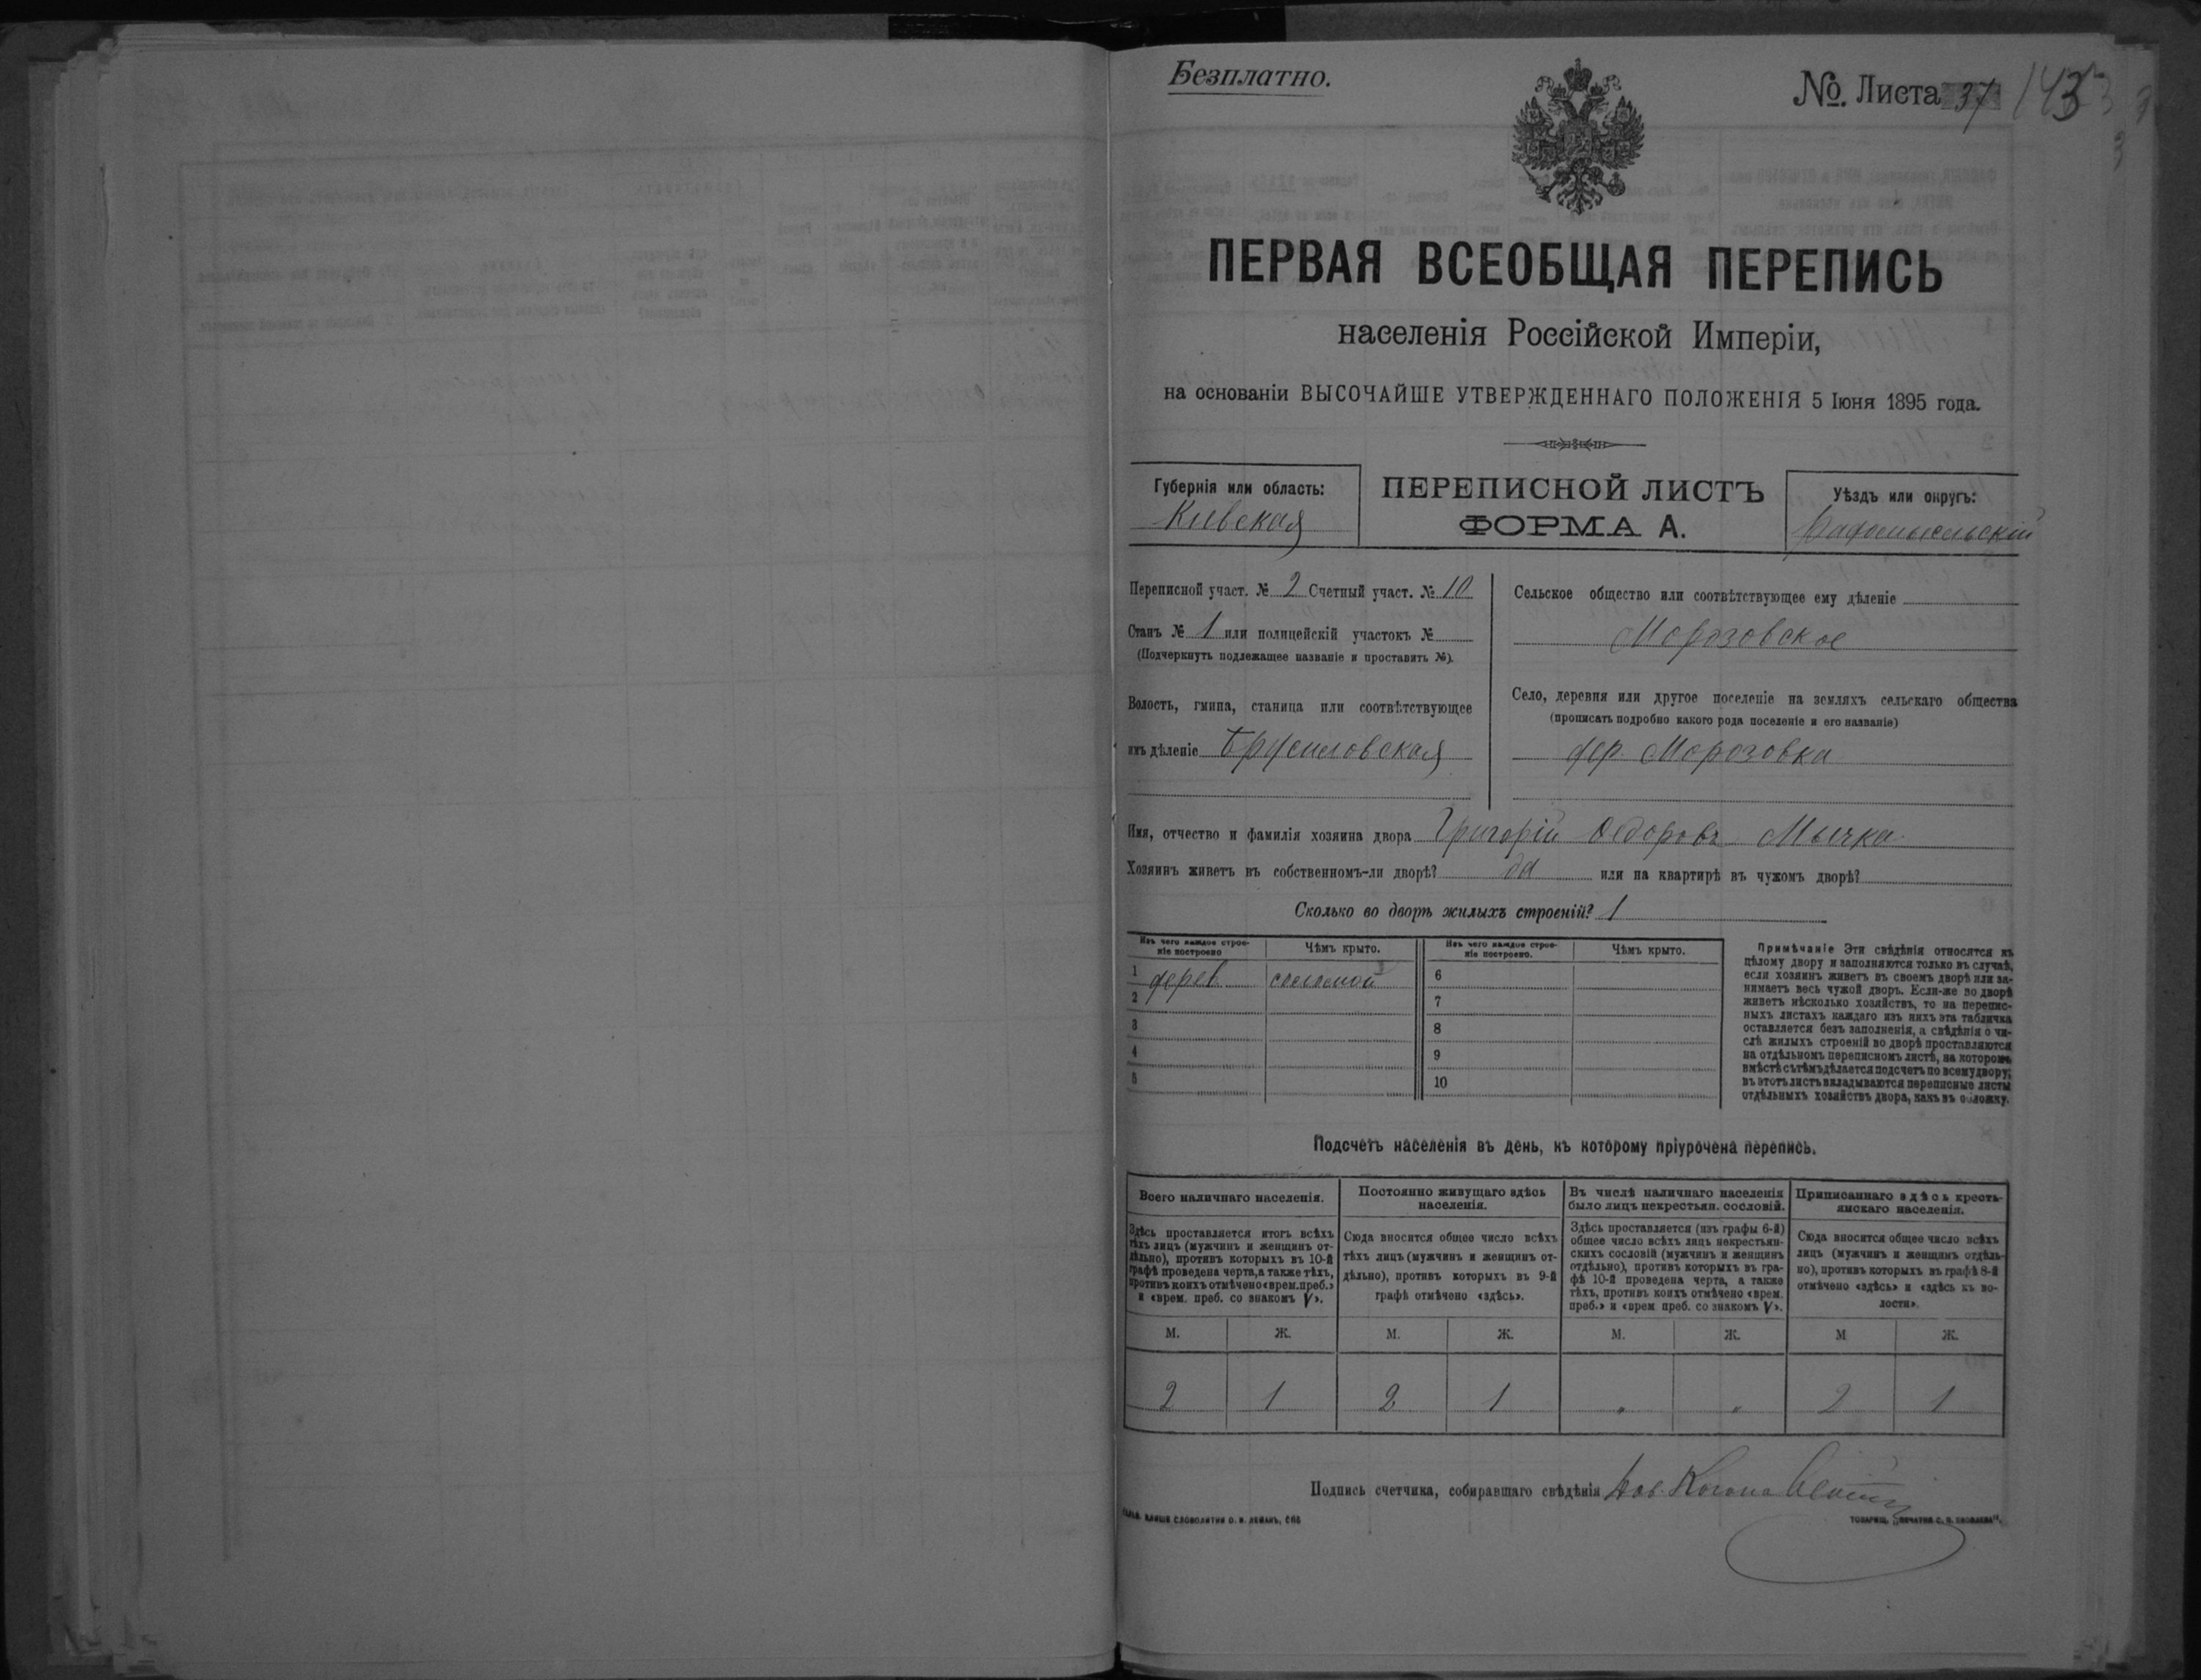 Безплатно.
№. Листа 37 143
ПЕРВАЯ ВСЕОБЩАЯ ПЕРЕПИСЬ
населенія Россійской Имперіи,
на основаніи ВЫСОЧАЙШЕ УТВЕРЖДЕННАГО ПОЛОЖЕНІЯ 5 Іюня 1895 года.
Губернія или область:
Кивская
ПЕРЕПИСНОЙ ЛИСТЪ
ФОРМА А.
Уѣздъ или округъ:
Радомысльскій
Переписной участ. № 2 Счетный участ. № 10
Станъ № 1 или полицейскій участокъ №
(Подчеркнуть подлежащее названіе и проставить №).
Волость, гмина, станица или соотвѣтствующее
имъ дѣленіе Брусиловская
Сельское общество или соотвѣтствующее ему дѣленіе
Морозовское
Село, деревня или другое поселеніе на земляхъ сельскаго общества
(прописать подробно какого рода поселеніе и его названіе)
дер. Морозовка
Имя, отчество и фамилія хозяина двора Григорій Федоровъ Мычка
Хозяинъ живетъ въ собственномъ-ли дворѣ? да или на квартирѣ въ чужомъ дворѣ?
Сколько во дворѣ жилыхъ строеній? 1
Изъ чего каждое строе-
ніе построено
Чѣмъ крыто.
Изъ чего каждое строе-
ніе построено.
Чѣмъ крыто.
1 дерев. соломой 6
2 7
3 8
4 9
5 10
Примѣчаніе Эти свѣдѣнія относятся къ
цѣлому двору и заполняются только въ случаѣ,
если хозяинъ живетъ въ своемъ дворѣ или за-
нимаетъ весь чужой дворъ. Если-же во дворѣ
живетъ нѣсколько хозяйствъ, то на перепис-
ныхъ листахъ каждаго изъ нихъ эта табличка
оставляется безъ заполненія, а свѣдѣнія о чи-
слѣ жилыхъ строеній во дворѣ проставляются
на отдѣльномъ переписномъ листѣ, на которомъ
вмѣстѣ съ тѣмъ дѣлается подсчетъ по всему двору;
въ этотъ листъ вкладываются переписные листы
отдѣльныхъ хозяйствъ двора, какъ въ обложку.
Подсчетъ населенія въ день, къ которому пріурочена перепись.
Всего наличнаго населенія.
Здѣсь проставляется итогъ всѣхъ
тѣхъ лицъ (мужчинъ и женщинъ от-
дѣльно), противъ которыхъ въ 10-й
графѣ проведена черта, а также тѣхъ,
противъ коихъ отмѣчено «врем. преб.»
и «врем. преб. со знакомъ V».
Постоянно живущаго здѣсь
населенія.
Сюда вносится общее число всѣхъ
тѣхъ лицъ (мужчинъ и женщинъ от-
дѣльно), противъ которыхъ въ 9-й
графѣ отмѣчено «здѣсь».
Въ числѣ наличнаго населенія
было лицъ некрестьян. сословій.
Здѣсь проставляется (изъ графы 6-й)
общее число всѣхъ лицъ некрестьян-
скихъ сословій (мужчинъ и женщинъ
отдѣльно), противъ которыхъ въ гра-
фѣ 10-й проведена черта, а также
тѣхъ, противъ коихъ отмѣчено «врем.
преб.» и «врем преб. со знакомъ V».
Приписаннаго здѣсь кресть-
янскаго населенія.
Сюда вносится общее число всѣхъ
лицъ (мужчинъ и женщинъ отдѣль-
но), противъ которыхъ въ графѣ 8-й
отмѣчено «здѣсь» и «здѣсь къ во-
лости».
М. Ж. М. Ж. М. Ж. М Ж.
2 1 2 1 " " 2 1
Подпись счетчика, собиравшаго свѣдѣнія
СЛОВОЛИТНИ О. И. ЛЕМАНЪ, СПБ
ТОВАРИЩ. „ПЕЧАТНЯ С. П. ЯКОВЛЕВА".